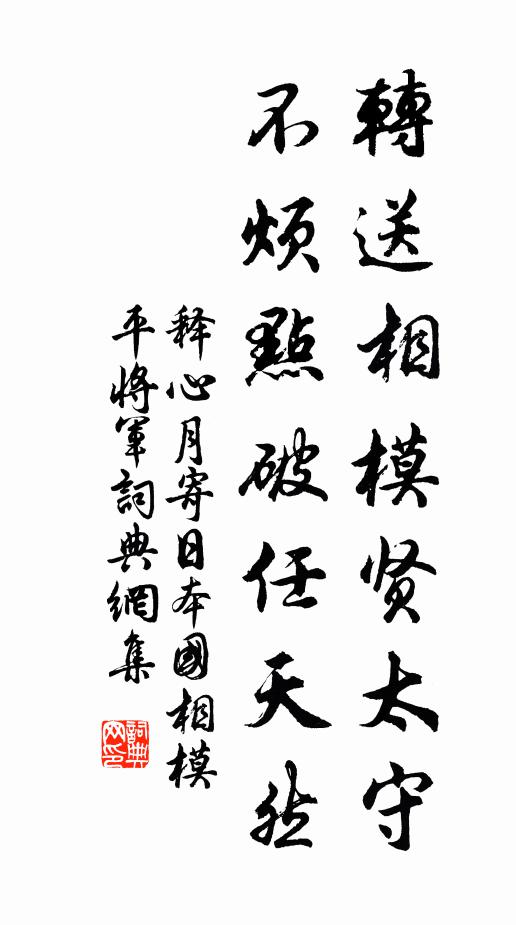 轉送相模贤太守
不烦點破任天然
释心月寄日本國相模
平將軍詞典網集
詞典
网印